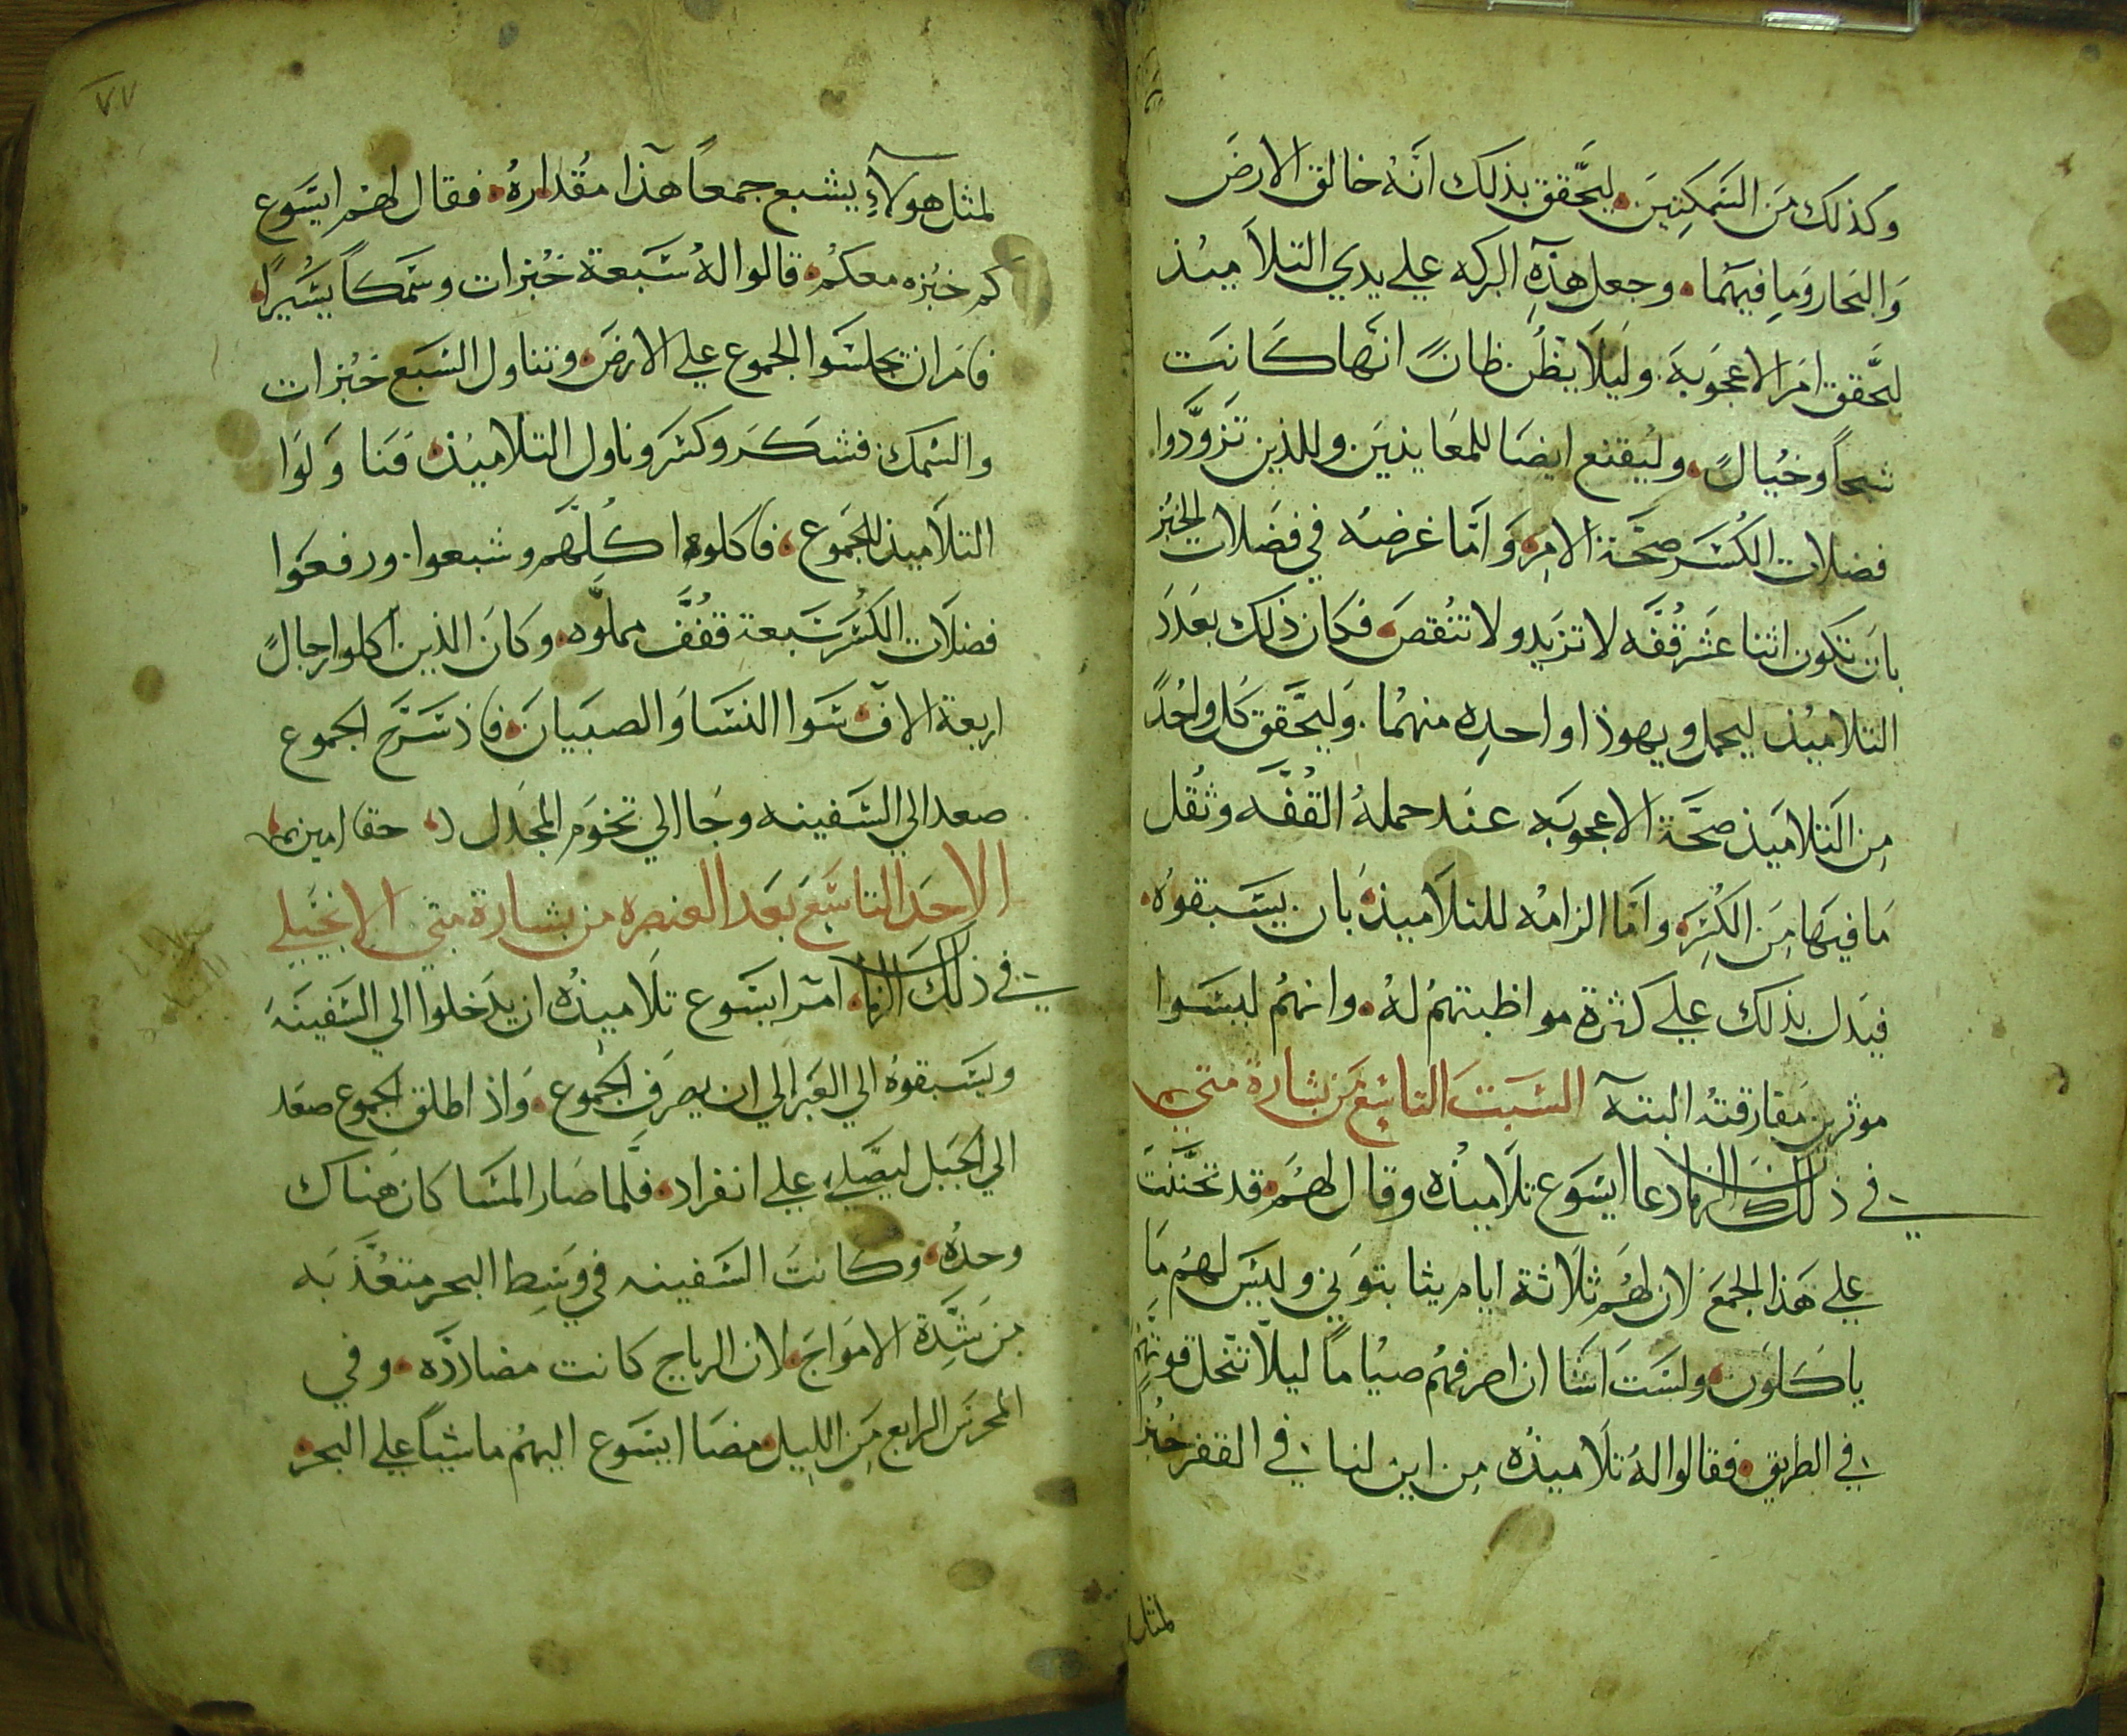 وكذلك من السمكتين ليحقق بذلك انه خالق الارض
والبحار وما فيهما وجعل هذه البركه علي يدي التلاميذ
ليحقق امر الاعجوبة وليلا يظن ظانً انها كانت
شبحاً وخيالً وليقنع ايضا للمعاندين وللذين تزودوا
فضلات الكسر صحة الامر واما غرضه في فضلات الخبز
بان تكون اثنا عشر قفه لا تزيد ولا تنقص فكان ذلك بعدد
التلاميذ ليحمل ويهوذا واحده منهما وليحقق كل واحدً
من التلاميذ صحة الاعجوبه عند حمله القفه وثقل
ما فيها من الكسر واما الزامه للتلاميذ بان يسبقوه
فيدل بذلك علي كثرة مواظبتهم له وانهم ليسوا
موثرين مفارقته البتة السبت التاسع من بشارة متي
في ذلك الزمان دعا ايسوع تلاميذه وقال لهم قد تحننت
علي هذا الجمع لان لهم ثلاثة ايام يثابتوني وليس لهم ما
ياكلون ولست اشا ان اصرفهم صياماً ليلا تنحل قوتهم
في الطريق فقالوا له تلاميذه من اين لنا في القفر خبزاً
لمثل
٧٧
لمثل هولاء يشبع جمعاً هذا مقداره فقال لهم ايسوع
كم خبزه معكم قالوا له سبعة خبزات وسمكاً يسيراً
فامر ان يجلسوا الجموع علي الارض وتناول السبع خبزات
والسمك فشكر وكسر وناول التلاميذ فناولوا
التلاميذ للجموع فاكلوا كلهم وشبعوا ورفعوا
فضلات الكسر سبعة قفف مملوه وكان الذين اكلوا رجالً
اربعة الاف سوا النسا والصبيان فاذ سرح الجموع
صعد الي السفينه وجا الي تخوم المجدل حقا امين
الاحد التاسع بعد العنصره من بشارة متي الانجيلي
في ذلك الزمان امر ايسوع تلاميذه ان يدخلوا الي السفينه
ويسبقوه الي العبر الي ان يصرف الجموع واذ اطلق الجموع صعد
الي الجبل ليصلي علي انفراد فلما صار المسا كان هناك
وحده وكانت السفينه في وسط البحر متعذبه
من شدة الامواج لان الرياح كانت مضاددّه وفي
المحرس الرابع من الليل مضا ايسوع اليهم ماشياً علي البحر